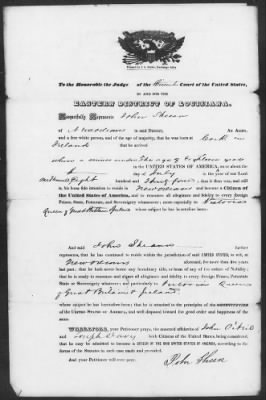 To the Honorable the Judge of the Circuit Court of the United States,
IN AND FOR THE
EASTERN DISTRICT OF LOUISIANA.
Respectfully Represents John Sheean
of New Orleans in said District, an Alien,
and a free white person, and of the age of majority, that he was born at Cork in
Ireland that he arrived
under the age of eighteen years
in the UNITED STATES OF AMERICA, on or about the
day of July in the year of our Lord
one thousand eight hundred and thirty four that it then was, and still
is, his bona fide intention to reside in New Orleans and become a Citizen of
the United States of America, and to renounce all allegiance and fidelity to every foreign
Prince, State, Potentate, and Sovereignty whatsoever, more especially to Victoria
Queen of Great Britain & Ireland whose subject he has heretofore been.
And said John Sheean further
represents, that he has continued to reside within the jurisdiction of said UNITED STATES, to wit,
at New Orleans aforesaid, for more than five years
last past; that he hath never borne any hereditary title, or been of any of the orders of Nobility;
that he is ready to renounce and abjure all allegiance and fidelity to every foreign Prince, Potentate
State and Sovereignty whatsoever, and particularly to Victoria Queen
of Great Britain & Ireland
whose subject he has heretofore been; that he is attached to the principles of the CONSTITUTION
of the UNITED STATES OF AMERICA, and well disposed toward the good order and happiness
of the same.
WHEREFORE, your Petitioner prays, the annexed affidavits of John
and Joseph being considered,
that he may be admitted to become a CITIZEN OF THE SAID UNITED STATES OF AMERICA, according to the
forms of the Statutes in such case made and provided.
And your Petitioner will ever pray,
John Sheean